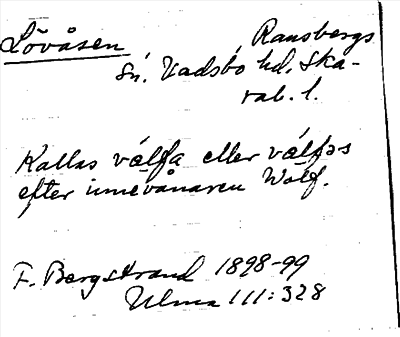 Lövåsen Ransbergs
sn. Vadsbo hd. Ska-
rab. l.
Kallas välfa eller välfəs
efter innevånaren Wolf.
F. Bergstrand 1898-99
Ulma 111:328